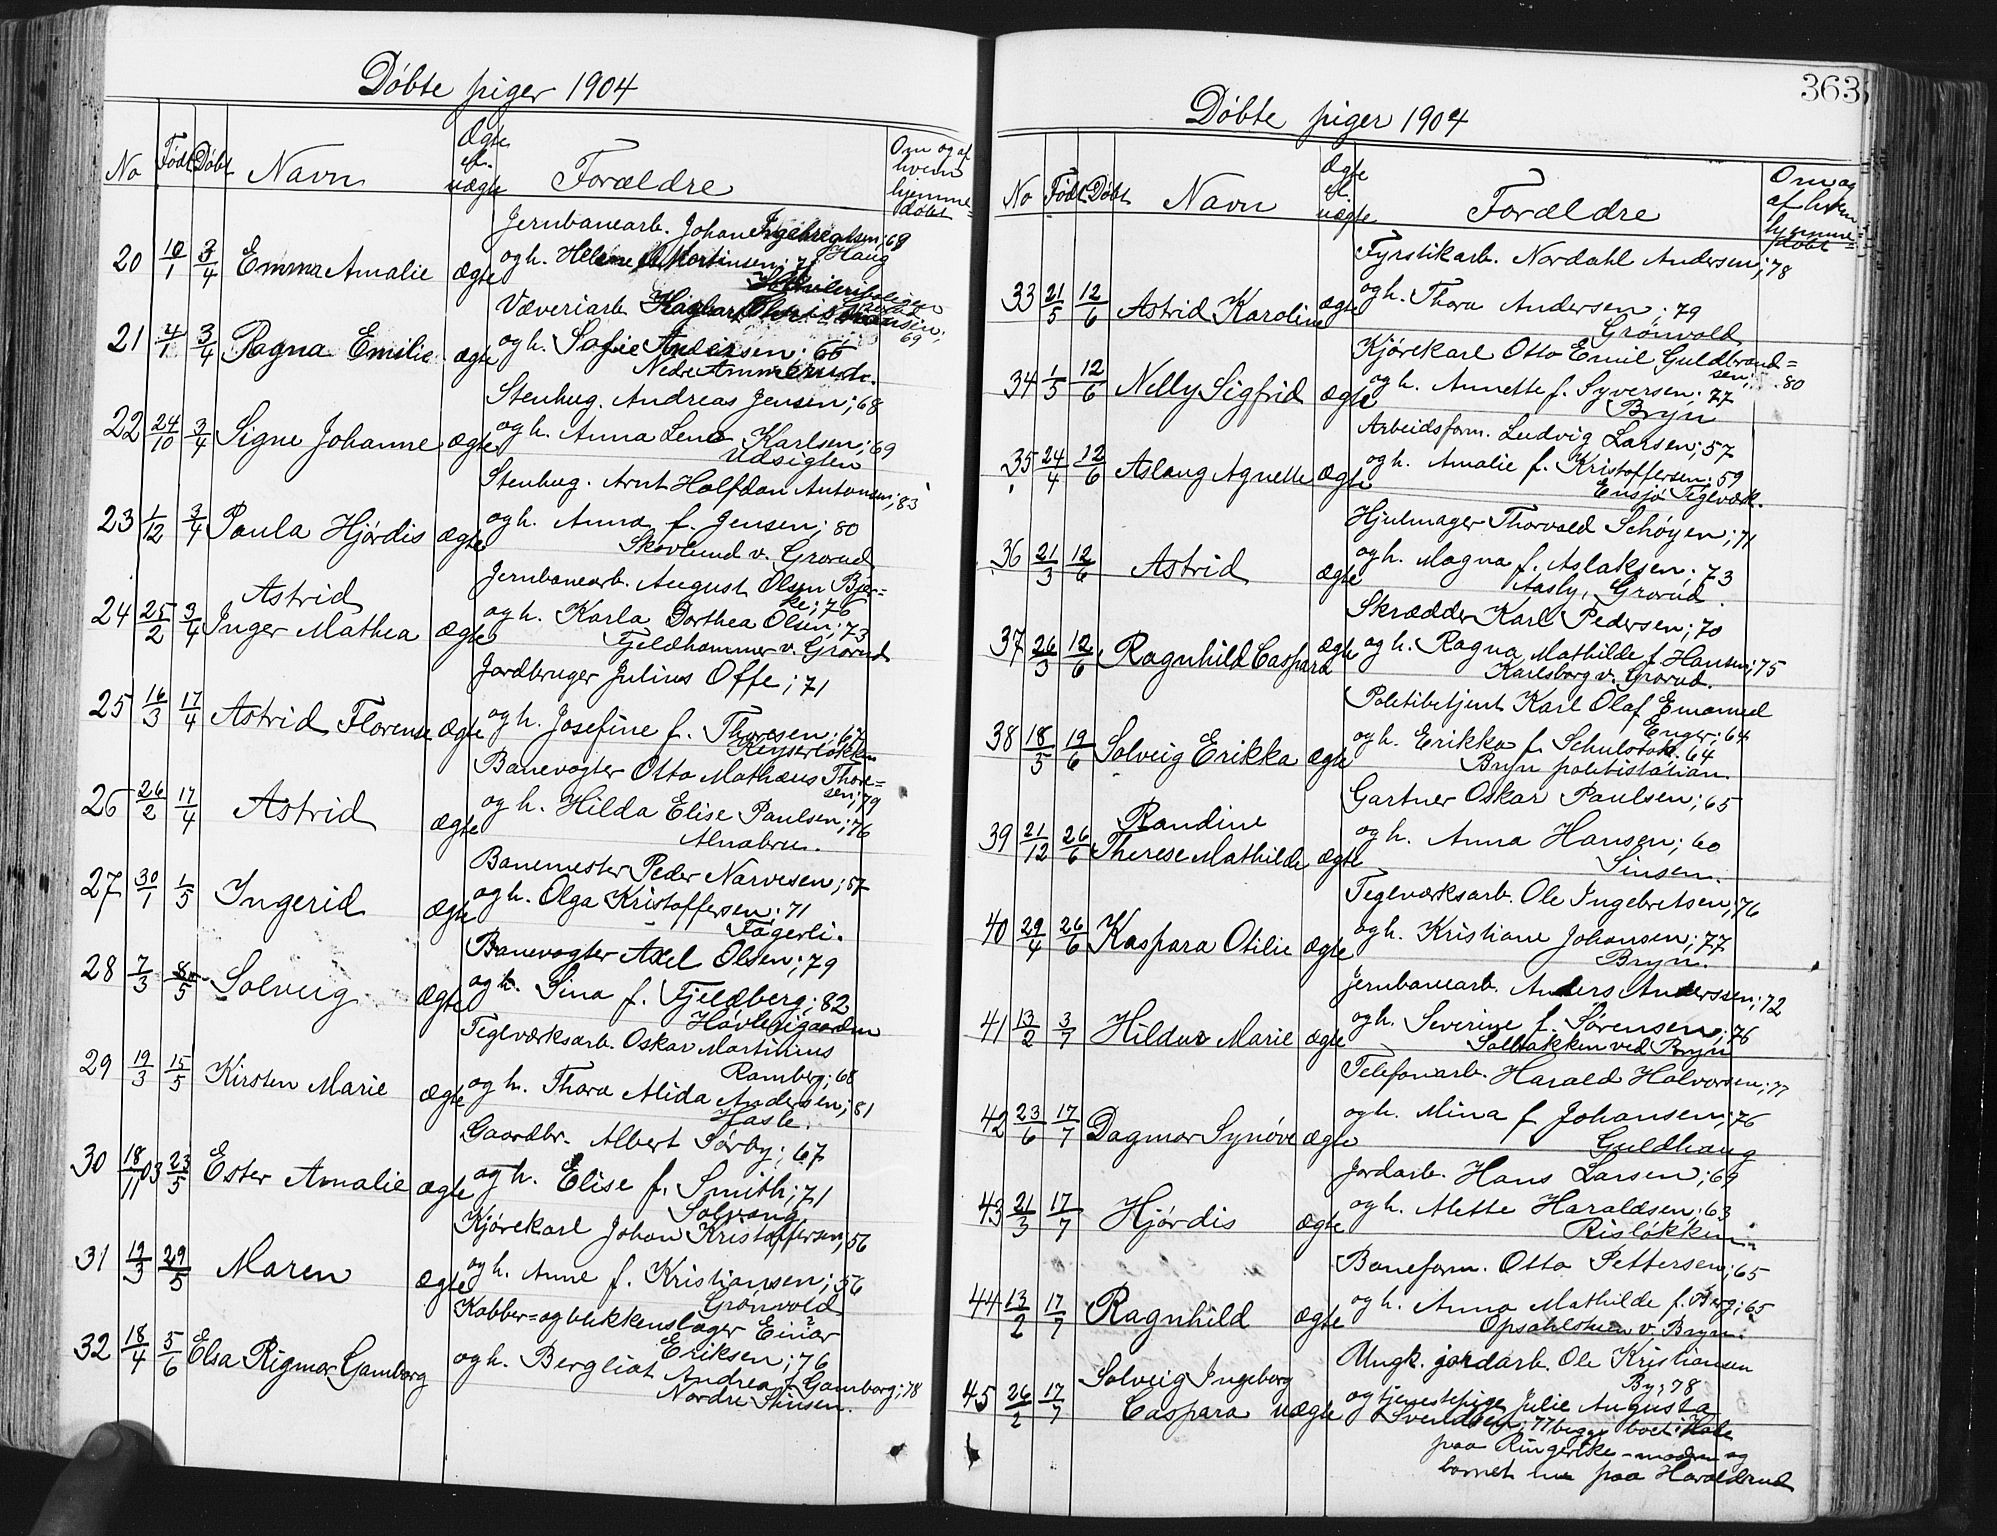 Døbte piger 1904
No Født Døbt Navn Ægte el. uægte Forældre Om og af hvem hjemme= døbt
Jernbanearb. Johan Ingebregtsen; 69
Haug
20 10/1 3/4 Emma Amalie ægte og h. Helene Mortinsen; 71
Væveriarb.
69
21 4/1 3/4 Ragna Emilie ægte og h. Sofie Andersen; 66
Nedre Ammerud.
Stenhug. Andreas Jensen; 68
22 24/10 3/4 Signe Johanne ægte og h. Anna Lena Karlsen; 69
Udsigten
Stenhug. Arnt Halfdan Antonsen; 83
23 1/12 3/4 Paula Hjørdis ægte og h. Anna f. Jensen; 80
Skovlund v. Grorud
Jernbanearb. August Olsen Bjer=
ke; 76
24 25/2 3/4 Astrid
Inger Mathea ægte og h. Karla Dorthea Olsen; 73
Fjeldhammer v. Grorud
Jordbruger Julius Offe; 71
25 16/3 17/4 Astrid Florense ægte og h. Josefine f. Thoresen; 67
Keyserløkken
Banevogter Otto Mathæus Thore=
sen; 79
26 26/2 17/4 Astrid ægte og h. Hilda Elise Paulsen; 76
Alnabru.
Banemester Peder Narvesen; 57
27 30/1 1/5 Ingerid ægte og h. Olga Kristoffersen; 71
Fagerli.
Banevogter Axel Olsen; 79
28 7/3 8/5 Solveig ægte og h. Sina f. Fjeldberg; 82
Høvlerigaarden
Teglværksarb. Oskar Martinius
Ramberg; 68
29 19/3 15/5 Kirsten Marie ægte og h. Thora Alida Andersen; 81
Hasle.
Gaardbr. Albert Sørby; 67
30 18/11 03 23/5 Ester Amalie ægte og h. Elise f. Smith; 71
Solvang
Kjørekarl Johan Kristoffersen, 56
31 19/3 29/5 Maren ægte og h. Anne f. Kristiansen; 56
Grønvold
Kobber= og blikkenslager Einar
Eriksen; 76
32 18/4 5/6 Elsa Rigmor Gamborg og h. Bergliot Andrea f. Gamborg; 78
Nordre Sinsen.
363
Døbte piger 1904
No Født Døbt Navn Ægte el uægte Forældre Om og af hvem hjemme= døbt
Fyrstikarb. Nordahl Andersen; 78
33 21/5 12/6 Astrid Karoline ægte og h. Thora Andersen; 79
Grönvold
Kjørekarl Otto Emil Guldbrand=
sen; 80
34 1/5 12/6 Nelly Sigfrid ægte og h. Annette f. Syversen; 77
Bryn
Arbeidsform. Ludvig Larsen; 57
35 24/4 12/6 Aslaug Agnette ægte og h. Amalie f. Kristoffersen; 59
Ensjø Teglværk.
Hjulmager Thorvald Schøyen; 71
36 21/3 12/6 Astrid ægte og h. Magna f. Aslaksen; 73
Aasly, Grorud.
Skrædder Karl Pedersen; 70
37 26/3 12/6 Ragnhild Caspara ægte og h. Ragna Mathilde f. Hansen; 75
Karlsborg v. Grorud.
Politibetjent Karl Olaf Emanuel
Enger; 64
38 18/5 19/6 Solveig Erikka ægte og h. Erikka f. Schulstok. 64
Bryn politistation.
Gartner Oskar Paulsen; 65
39 21/12 26/6 Randine
Therese Mathilde ægte og h. Anna Hansen; 60
Sinsen.
Teglværksarb. Ole Ingebretsen; 76
40 29/4 26/6 Kaspara Otilie ægte og h. Kristiane Johansen; 77
Bryn.
Jernbanearb. Anders Anderssen; 72
41 13/2 3/7 Hildur Marie ægte og h. Severine f. Sørensen; 76
Solbakken ved Bryn
Telefonarb. Harald Halvorsen; 77
42 23/6 17/7 Dagmar Synöve ægte og h. Mina f Johansen; 76
Guldhaug
Jordarb. Hans Larsen; 69
43 21/3 17/7 Hjördis ægte og h. Mette Haraldsen; 63
Risløkken.
Baneform. Otto Pettersen; 65
44 13/2 17/7 Ragnhild ægte og h. Anna Mathilde f. Berg; 65
Opsahlstuen v. Bryn.
Ungk. jordarb. Ole Kristiansen
By; 78
45 26/2 17/7 Solveig Ingeborg
Caspara uægte og tjenestepige Julie Augusta
Svendsen; 77 begge boet i Hole
paa Ringerike - modren og
barnet nu paa Haraldrud